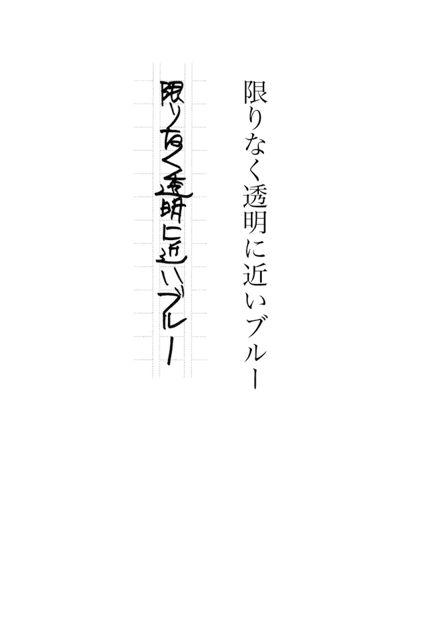 限りなく透明に近いブルー
限りなく透明に近いブルー